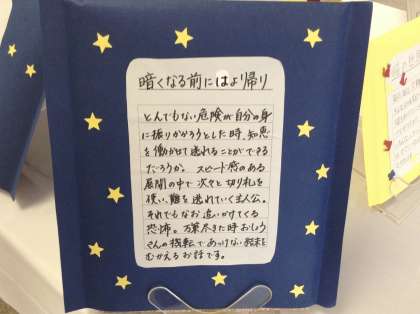 暗くなる前にはよ帰り
とんでもない危険が自分の身
に振りかかろうとした時、知恵
を働かせて逃れることができる
だろうか。スピード感のある
展開の中で次々と切り札を
使い、難を逃れていく主人公。
それでもなお追いかけてくる
恐怖。万策尽きた時おしょう
さんの機転であっけない結末を
むかえるお話です。